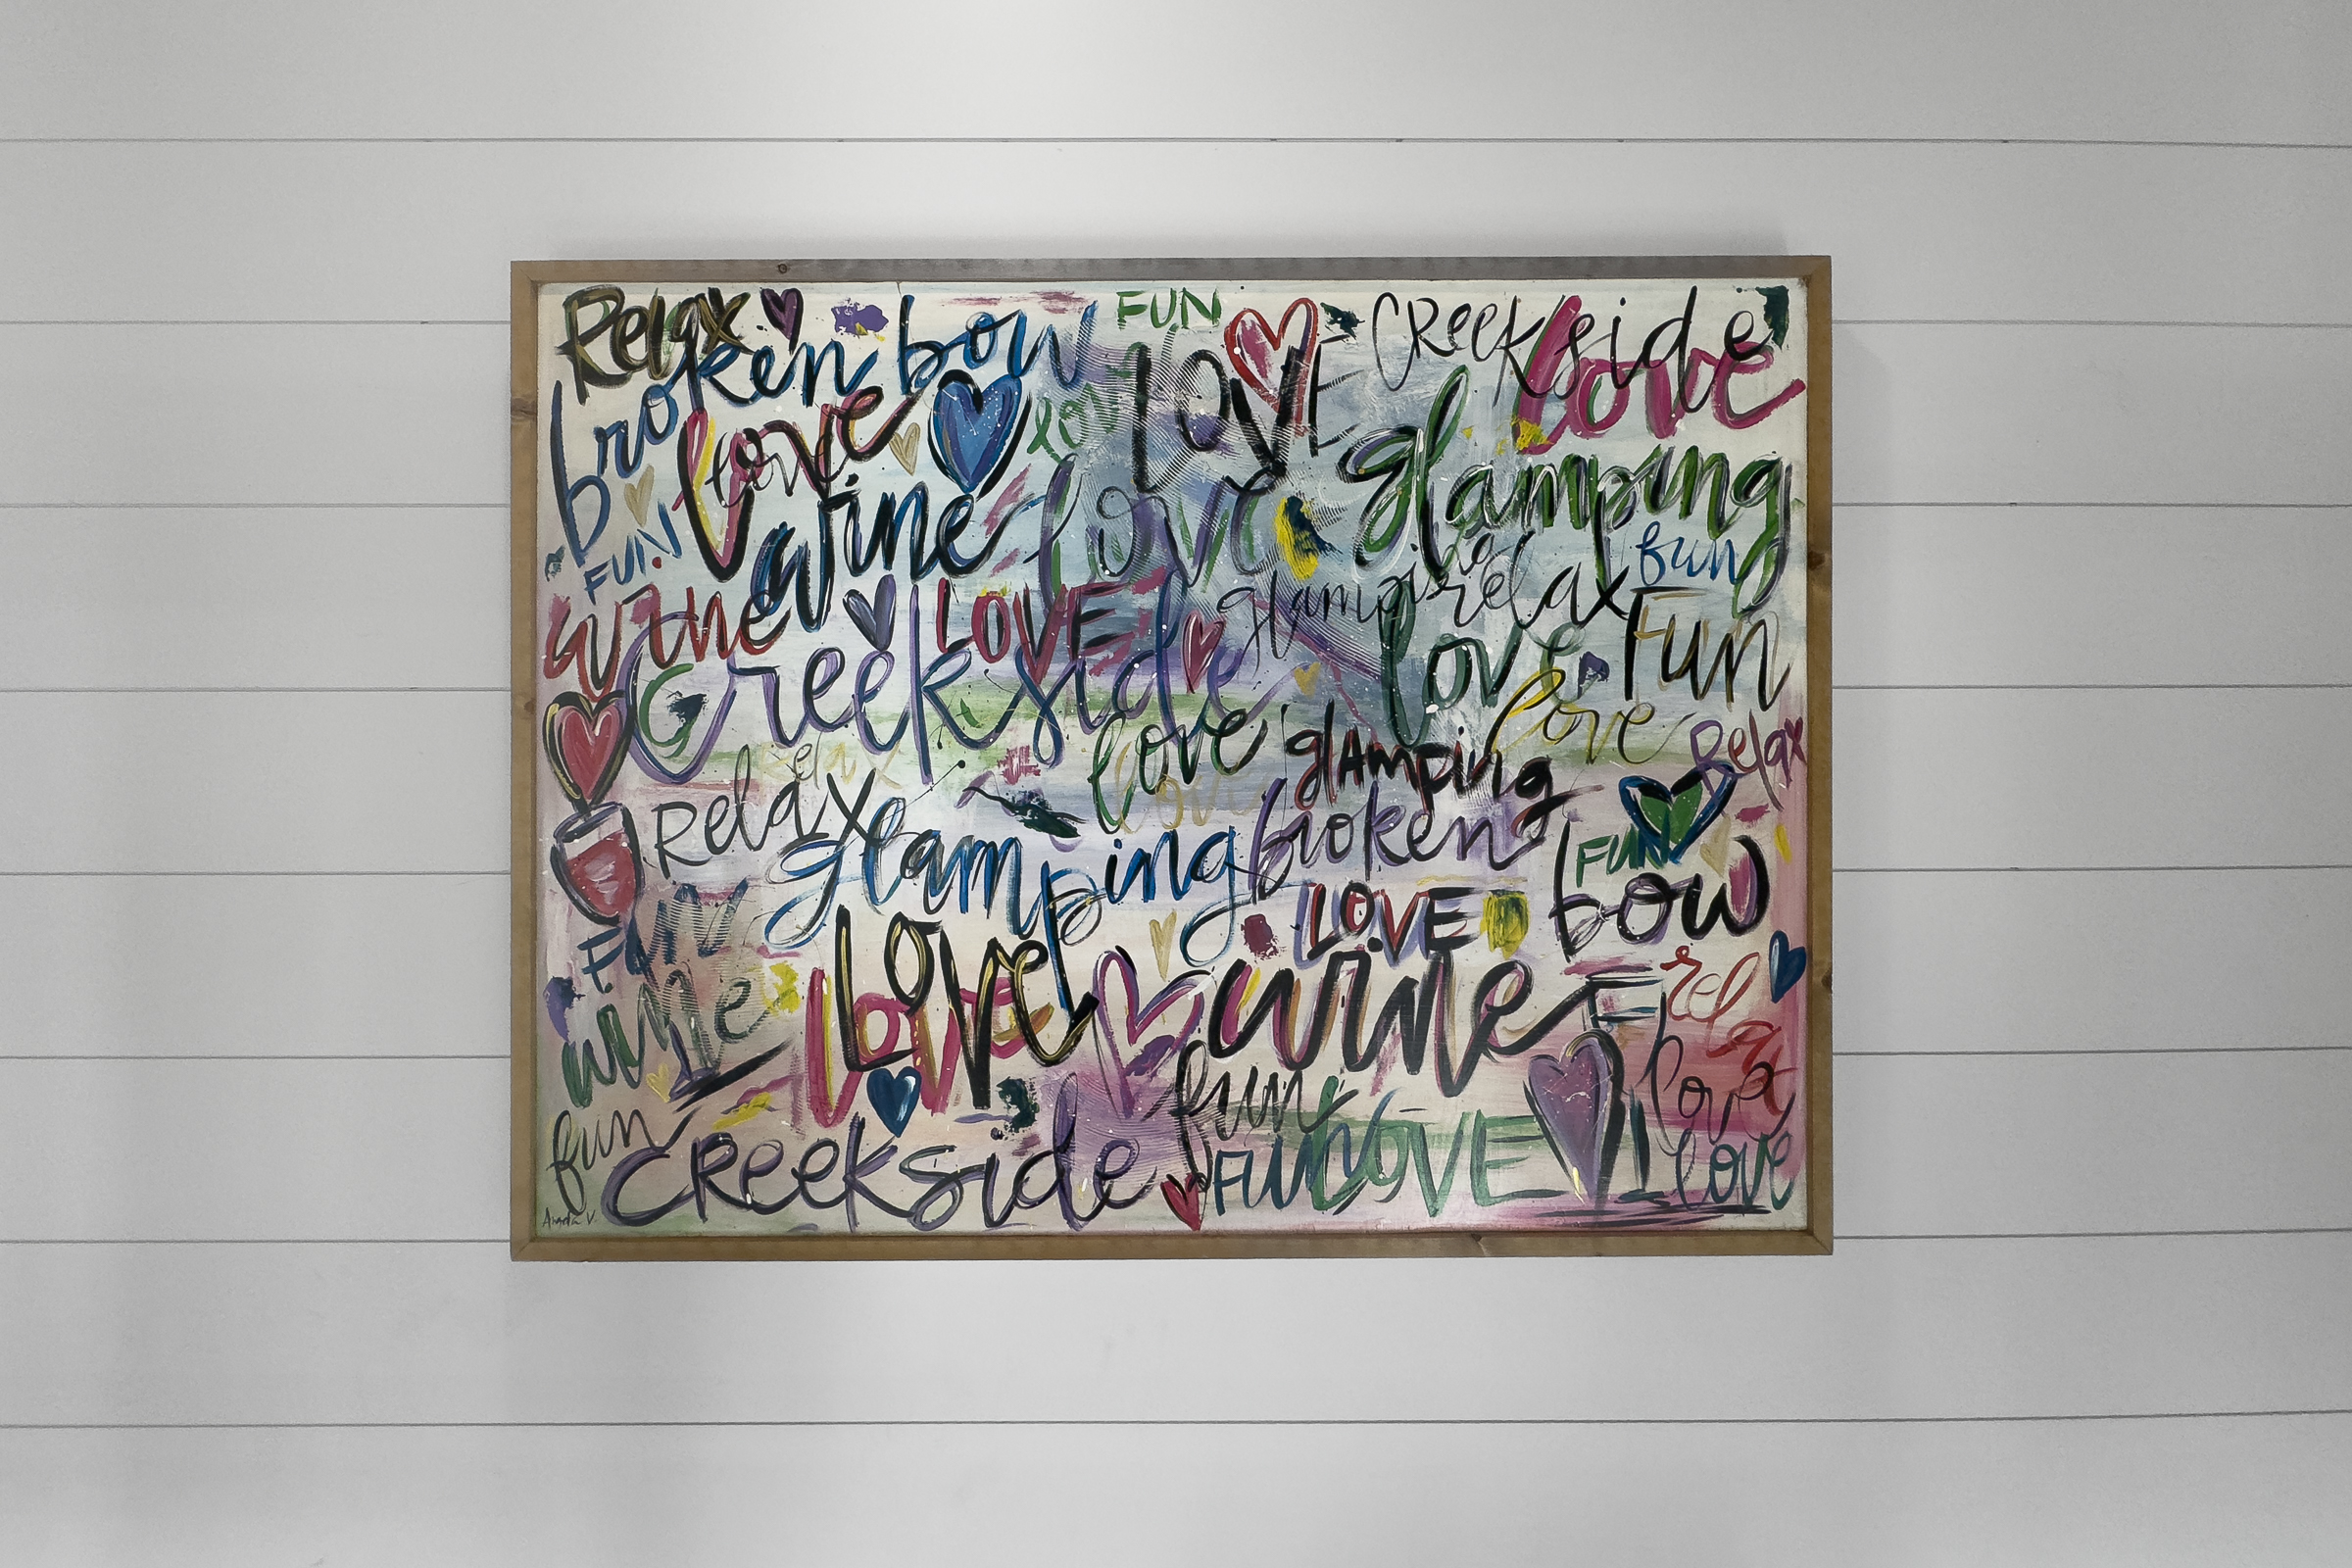 Relax
broken bow
FUN
LOVE
Creekside
love
love
love
love
glamping
FUN
wine
love
glamping
relax
fun
wine
LOVE
love
Fun
Creekside
love
love
glamping
Relax
Relax
Relax
love
glamping
broken
FUN
bow
FUN
LOVE
love
LOVE
wine
relax
wine
love
fun
fun
Creekside
FUN
LOVE
love